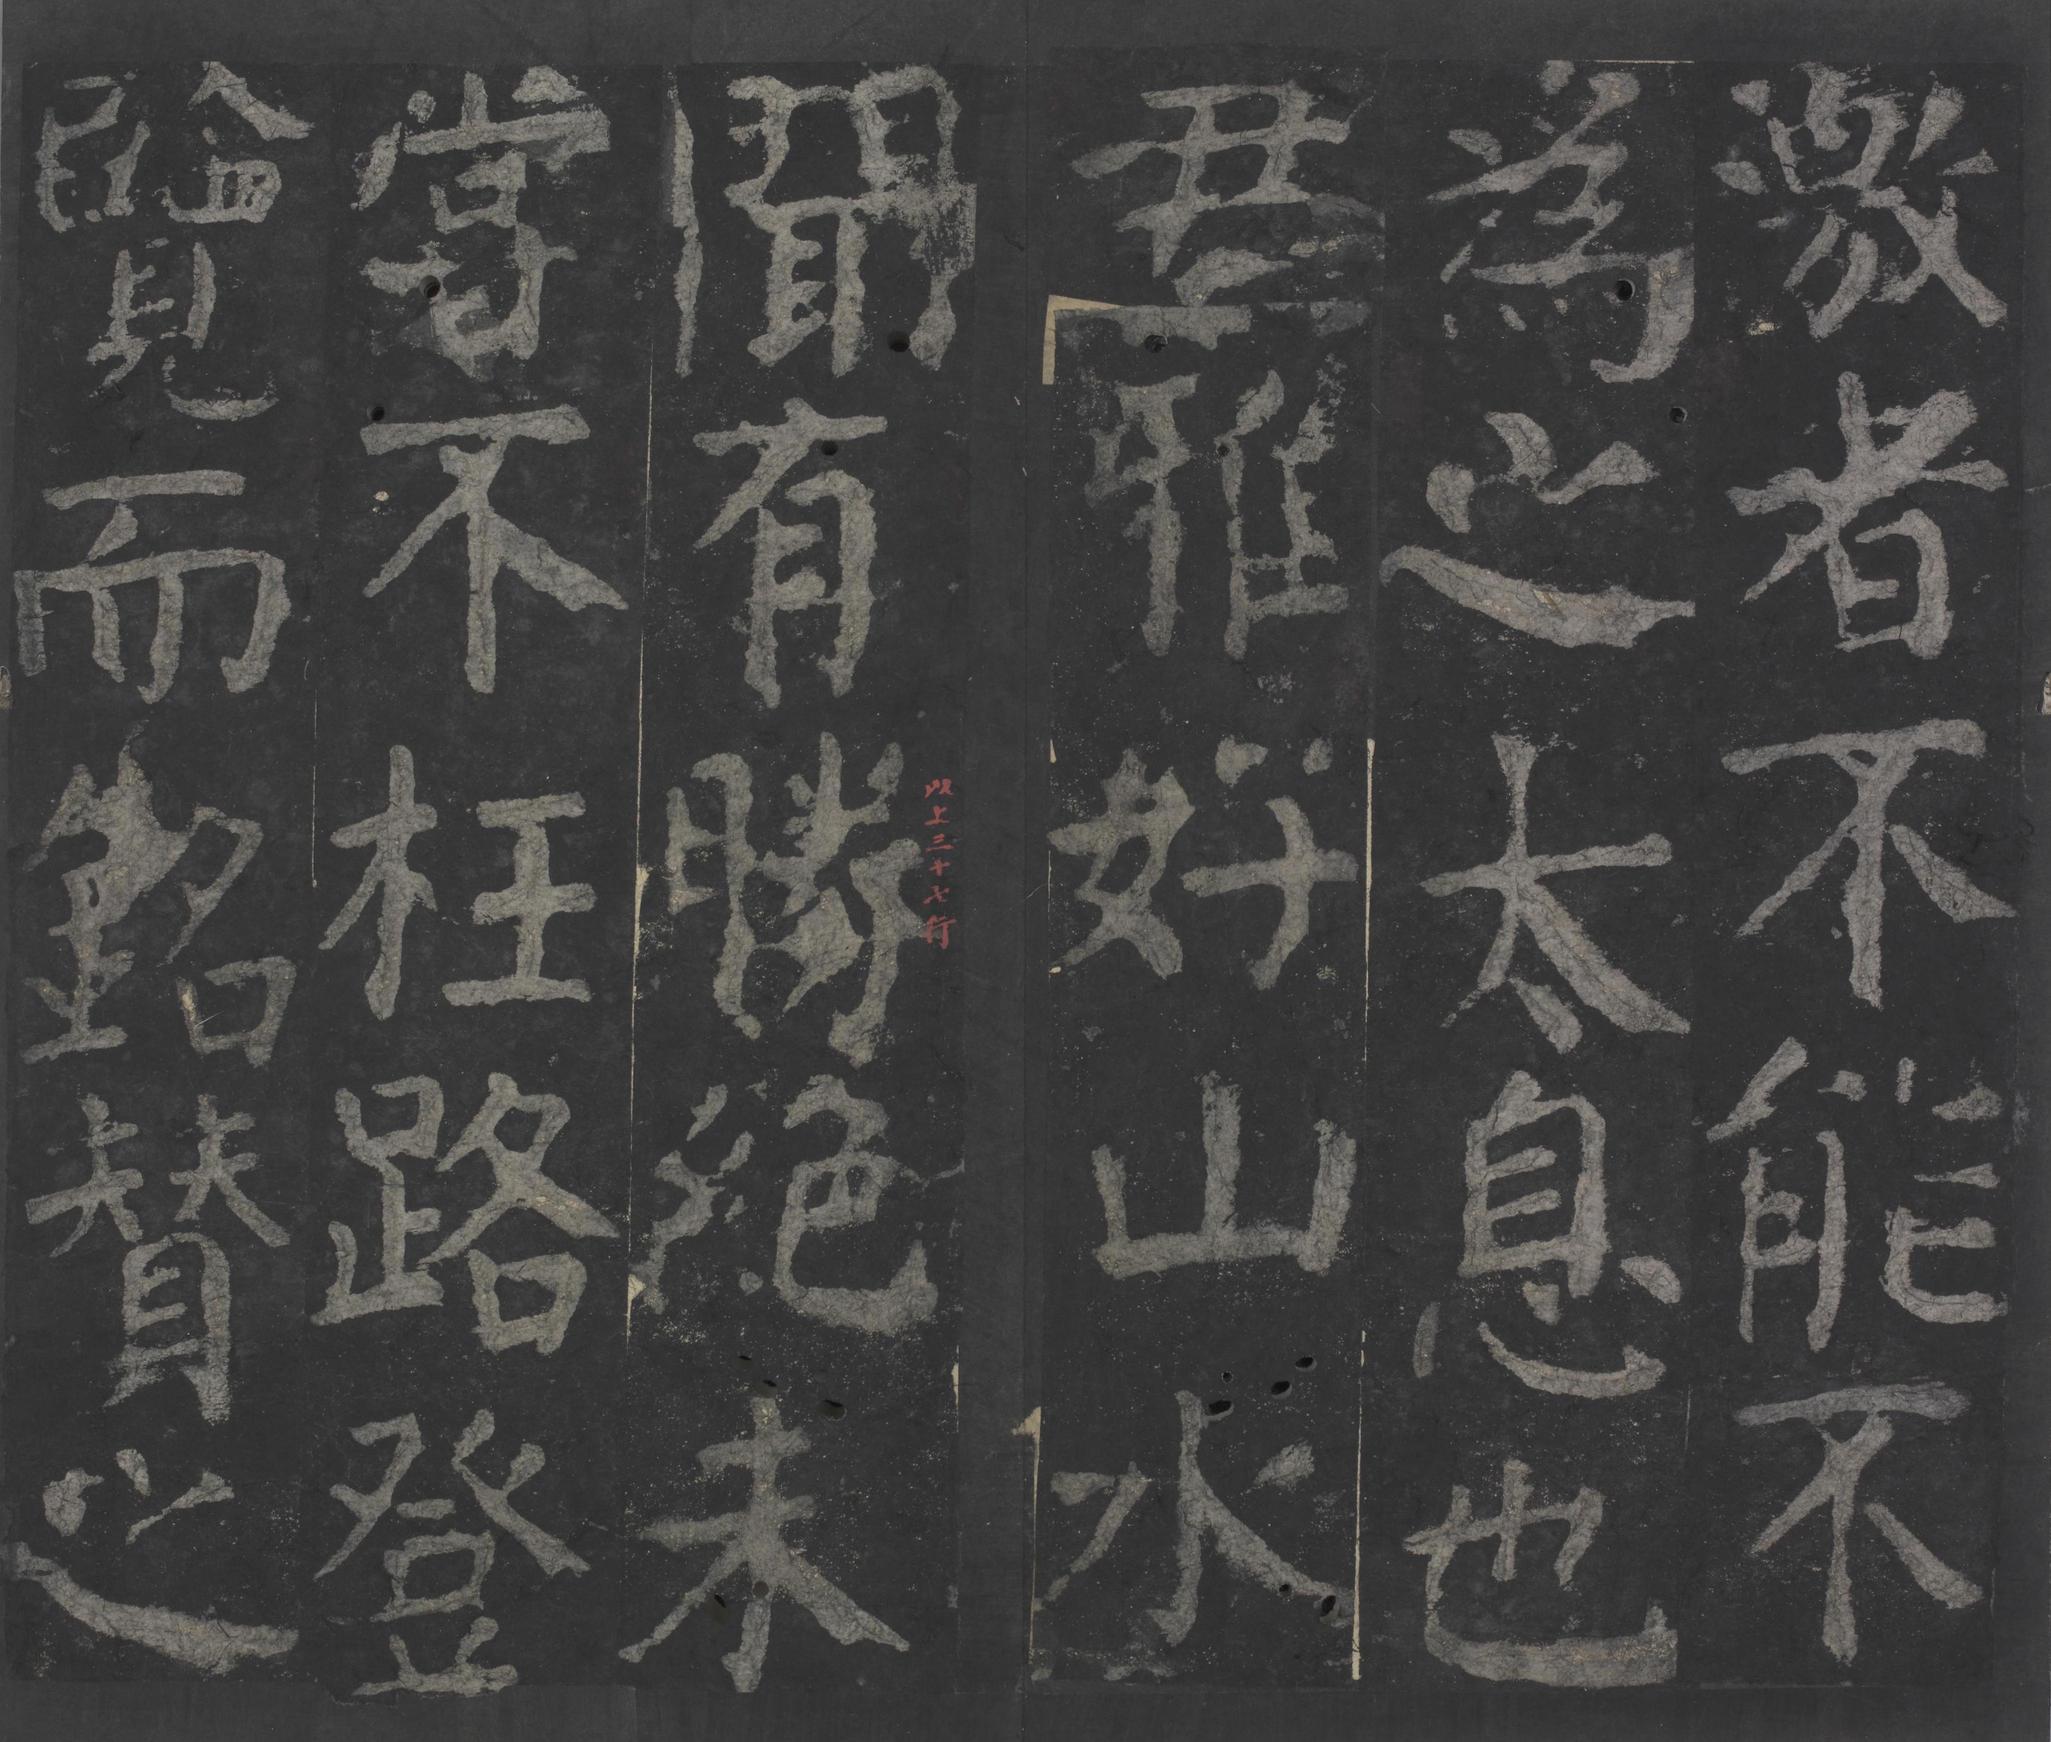 激者不能不
為之太息也
君雅好山水
以上三十七行
聞有勝絕未
嘗不枉路登
覽而銘贊之